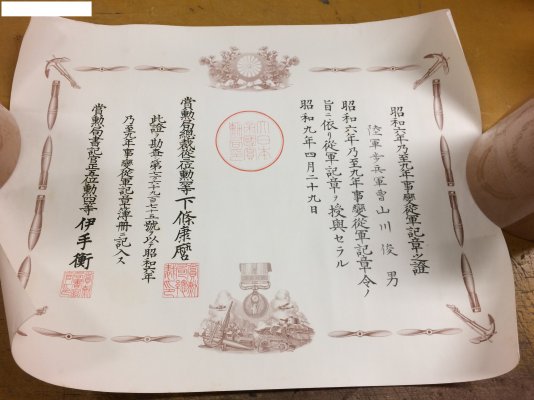 昭和六年乃至九年事變從軍記章之證
陸軍歩兵軍曹山川俊男
昭和六年乃至九年事變從軍記章令ノ
旨ニ依リ從軍記章ヲ授與セラル
昭和九年四月二十九日
賞勲局總裁從三位勲二等下條康麿
此證ヲ勘査シ第七三九百七十五號ヲ以テ昭和六年
乃至九年事變從軍記章簿冊ニ記入ス
賞勲局書記官正五位勲四等伊手衡